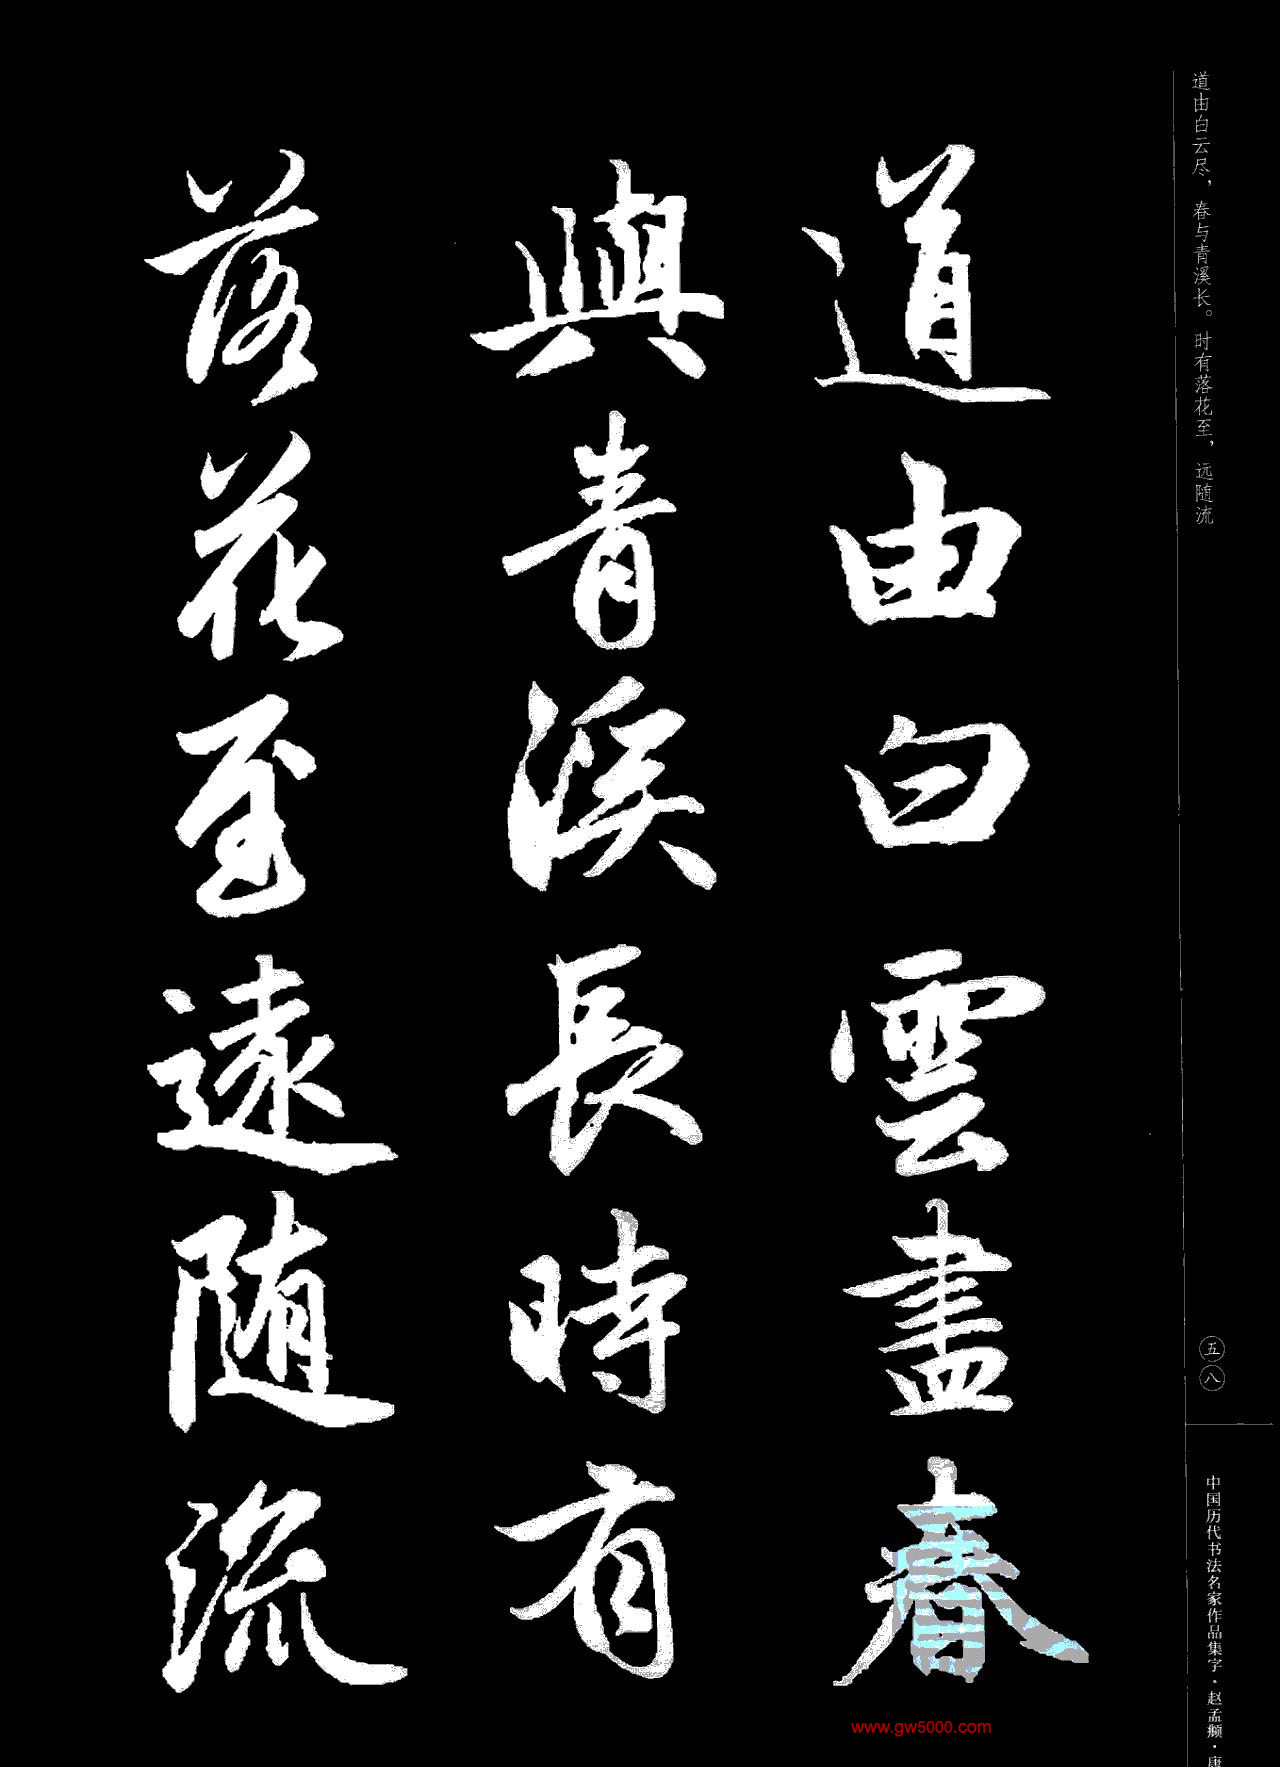 道由白云尽，春与青溪长。时有落花至，远随流
道由白雲盡春
與青溪長時有
落花至遠随流
五八
中国历代书法名家作品集字·赵孟頫·唐
www.gw5000.com